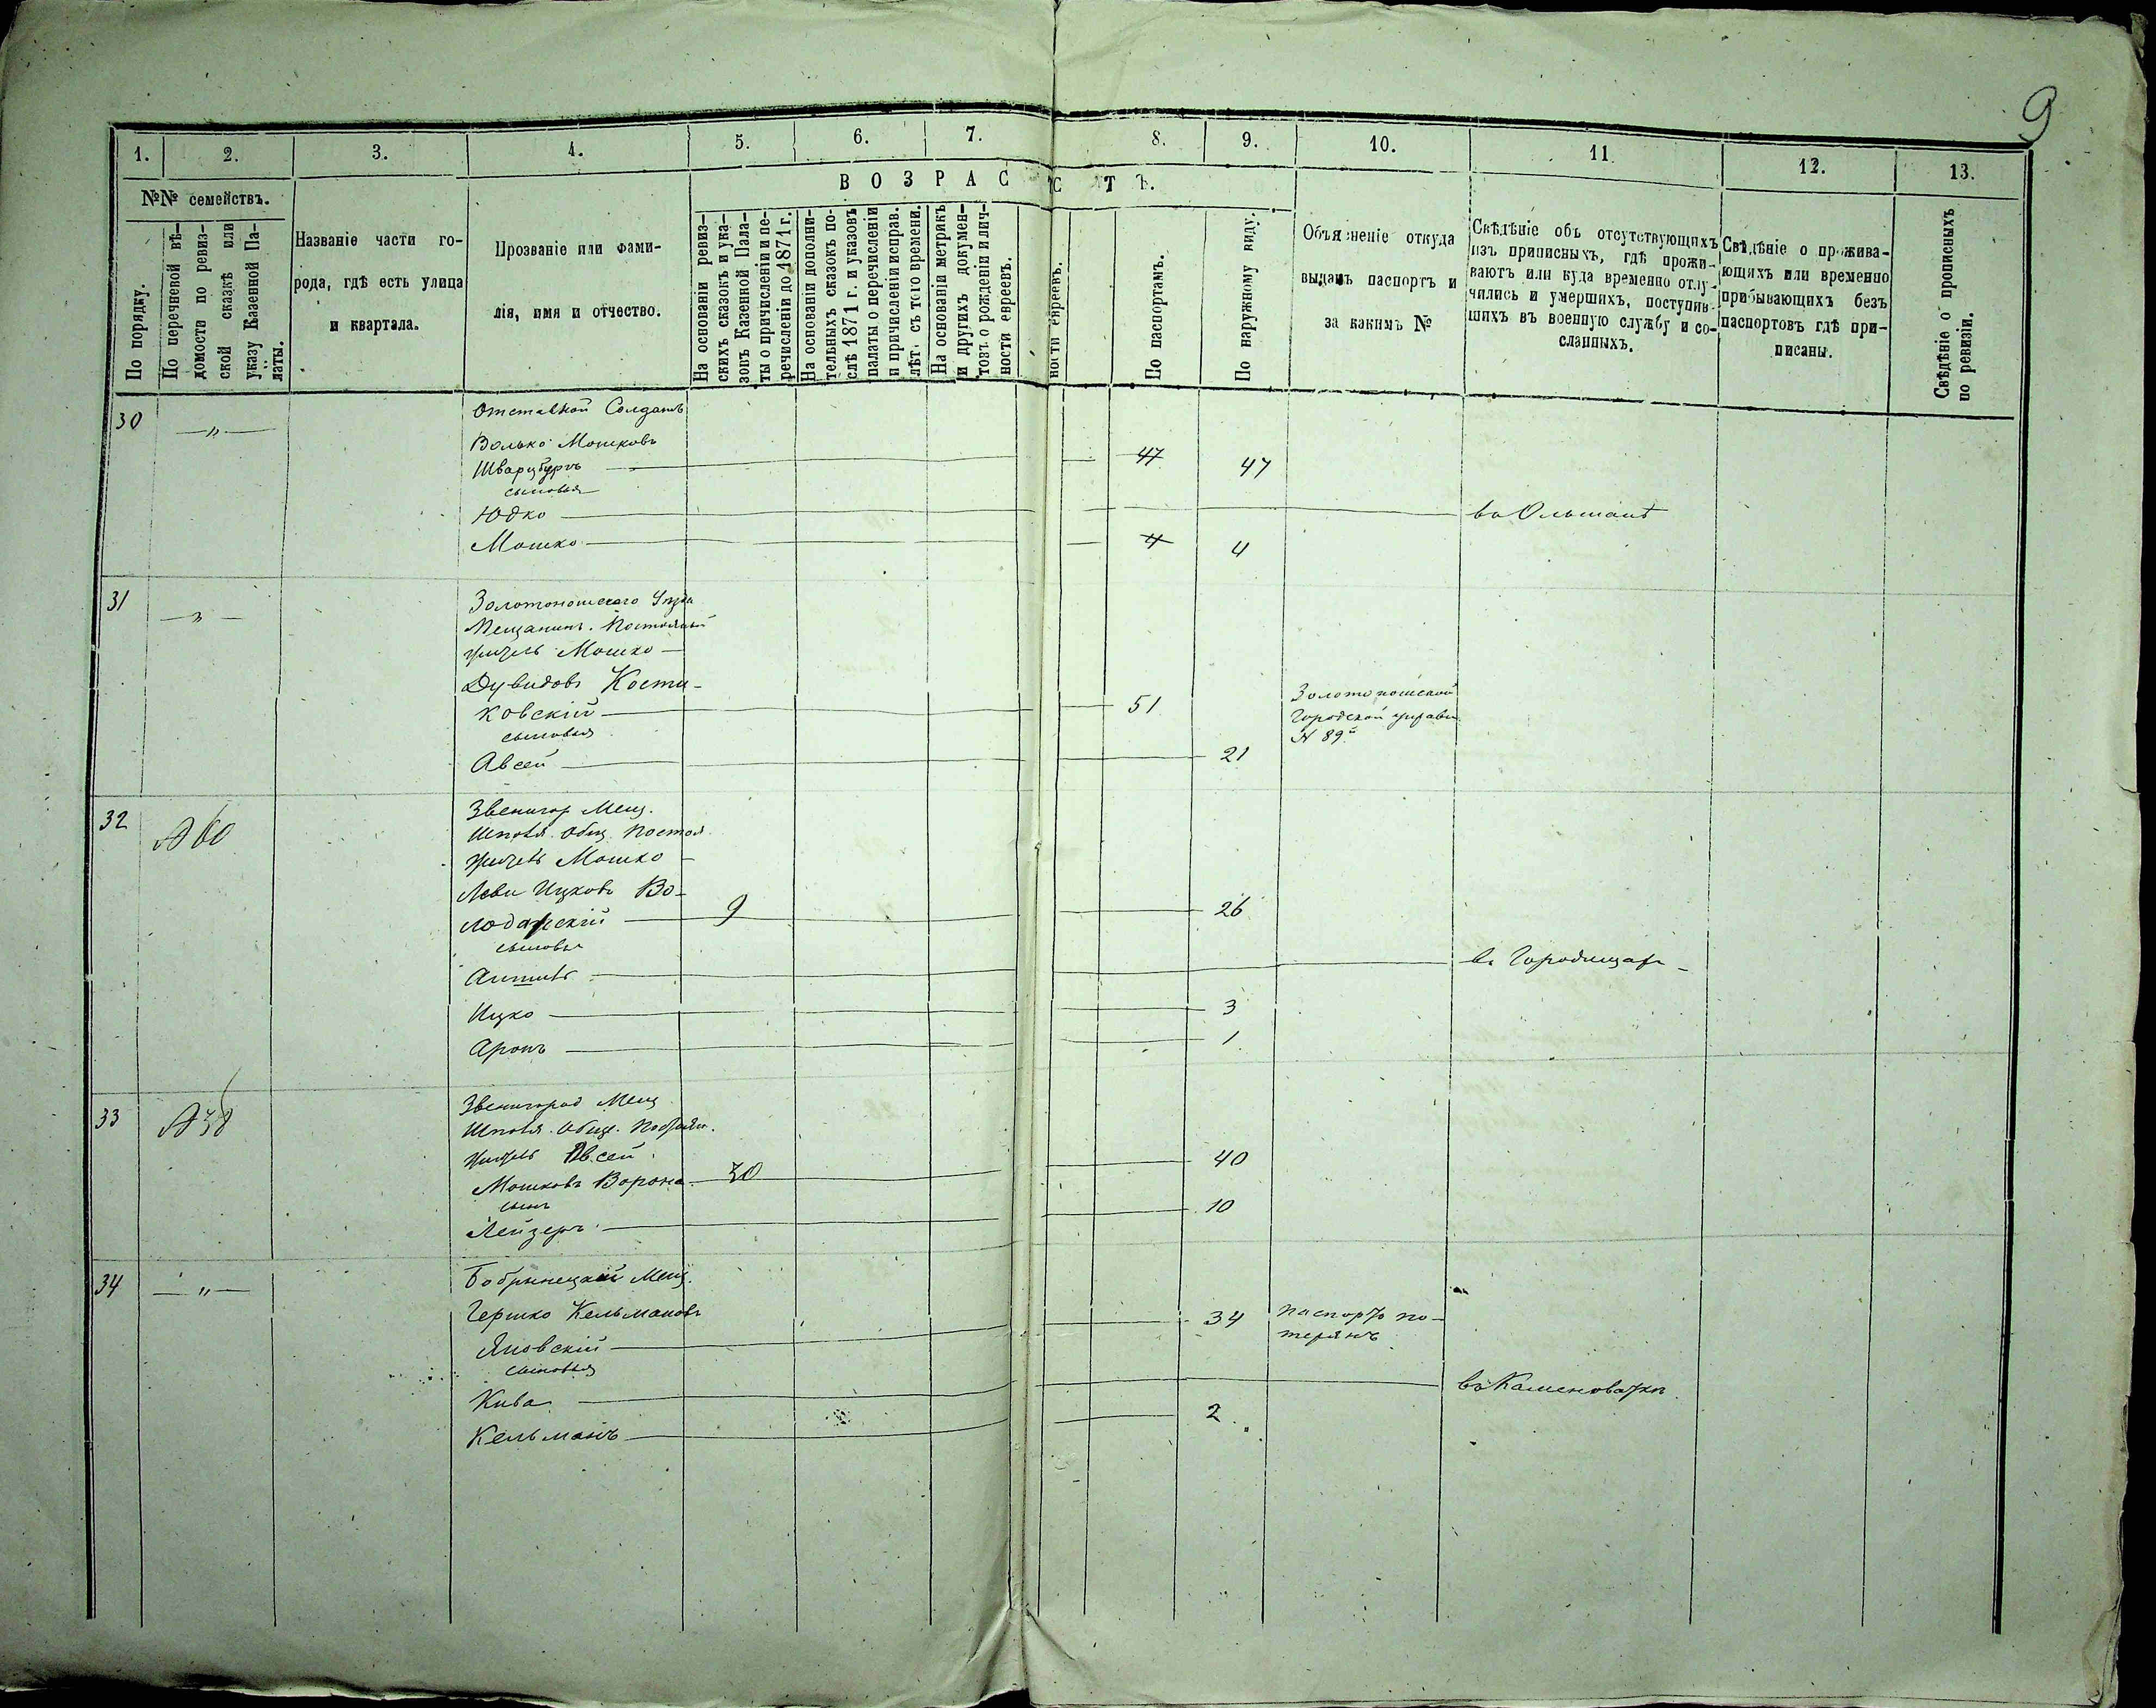 9
1. 2. 3. 4. 5. 6. 7. 8. 9. 10. 11. 12. 13.
№№ семействъ.
По порядку.
По перечневой вѣ-
домости по ревиз-
ской сказкѣ или
указу Казенной Па-
латы.
Названіе части го-
рода, гдѣ есть улица
и квартала.
Прозваніе или фами-
лія, имя и отчество.
ВОЗРАС СТЪ.
На основаніи ревиз-
скихъ сказокъ и ука-
зовъ Казенной Пала-
ты о причисленіи и пе-
речисленіи до 1871 г.
На основаніи дополни-
тельныхъ сказокъ по-
слѣ 1871 г. и указовъ
палаты о перечисленіи
и причисленіи исправ.
лѣт. съ того времени.
На основаніи метрикъ
и другихъ докумен-
товъ о рожденіи и лич-
ности евреевъ.
ности евреевъ.
По паспортамъ.
По наружному виду.
Объясненіе откуда
выданъ паспортъ и
за какимъ №
Свѣдѣніе объ отсутствующихъ
изъ приписныхъ, гдѣ прожи-
ваютъ или куда временно отлу-
чились и умершихъ, поступив-
шихъ въ военную службу и со-
сланныхъ.
Свѣдѣніе о прожива-
ющихъ или временно
прибывающихъ безъ
паспортовъ гдѣ при-
писаны.
Свѣдѣніе о прописныхъ
по ревизіи.
30 — „ — Отставной Солдатъ
Волько Мошковъ
Шварцбургъ 47 47
сыновья
Юдко въ Ольшанѣ
Мошко 4 4
31 — „ — Золотоношскаго Уѣзда
Мещанинъ. Постоянный
житель Мошко
Дувидовъ Кости-
ковскій 51 Золотоношской
Городской управы
№ 89
сыновья
Авсей 21
32 №60 Звенигор Мещ.
Шпол. Общ. Постоя
житель Мошко
Леви Ицковъ Во-
лодарскій 9 26
сыновья
въ Городищахъ
Ицко 3
Аронъ 1
33 №38 Звенигород Мещ
Шпол. Общ. Постоян.
житель Авсей
Мошковъ Ворона 30 40
сынъ
Лейзеръ 10
34 — „ — Бобринецкій Мещ.
Гершко Кельмановъ
Яновскій 34 паспортъ по-
терянъ
сыновья
Кива въ Каменоваткѣ
Кельманъ 2